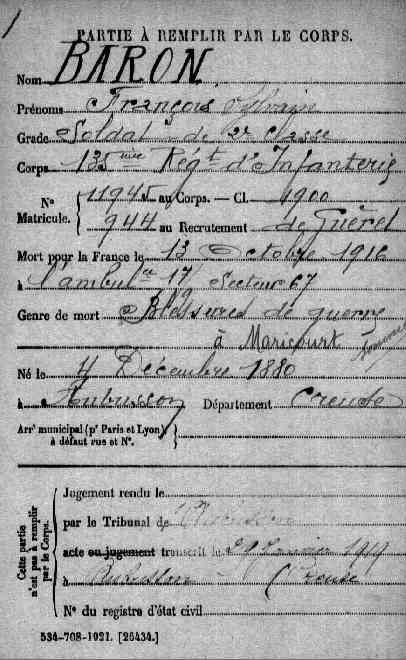 1
PARTIE À REMPLIR PAR LE CORPS.
Nom BARON
Prénoms François Sylvain
Grade Soldat de 2e classe
Corps 135ème Régt d'Infanterie
N° Matricule. { 11945 au Corps. — Cl. 1900
944 au Recrutement de Guéret
Mort pour la France le 13 Octobre 1916
à l'ambulce 17 Secteur 67
Genre de mort Blessures de guerre
à Maricourt Somme
Né le 4 Décembre 1880
à Aubusson Département Creuse
Arrt municipal (pr Paris et Lyon), à défaut rue et N°. }
Cette partie n'est pas à remplir par le Corps.
Jugement rendu le
par le Tribunal de
acte ou jugement transcrit le 29 1919
à Aubusson Creuse
N° du registre d'état civil
534-708-1921. [26434.]